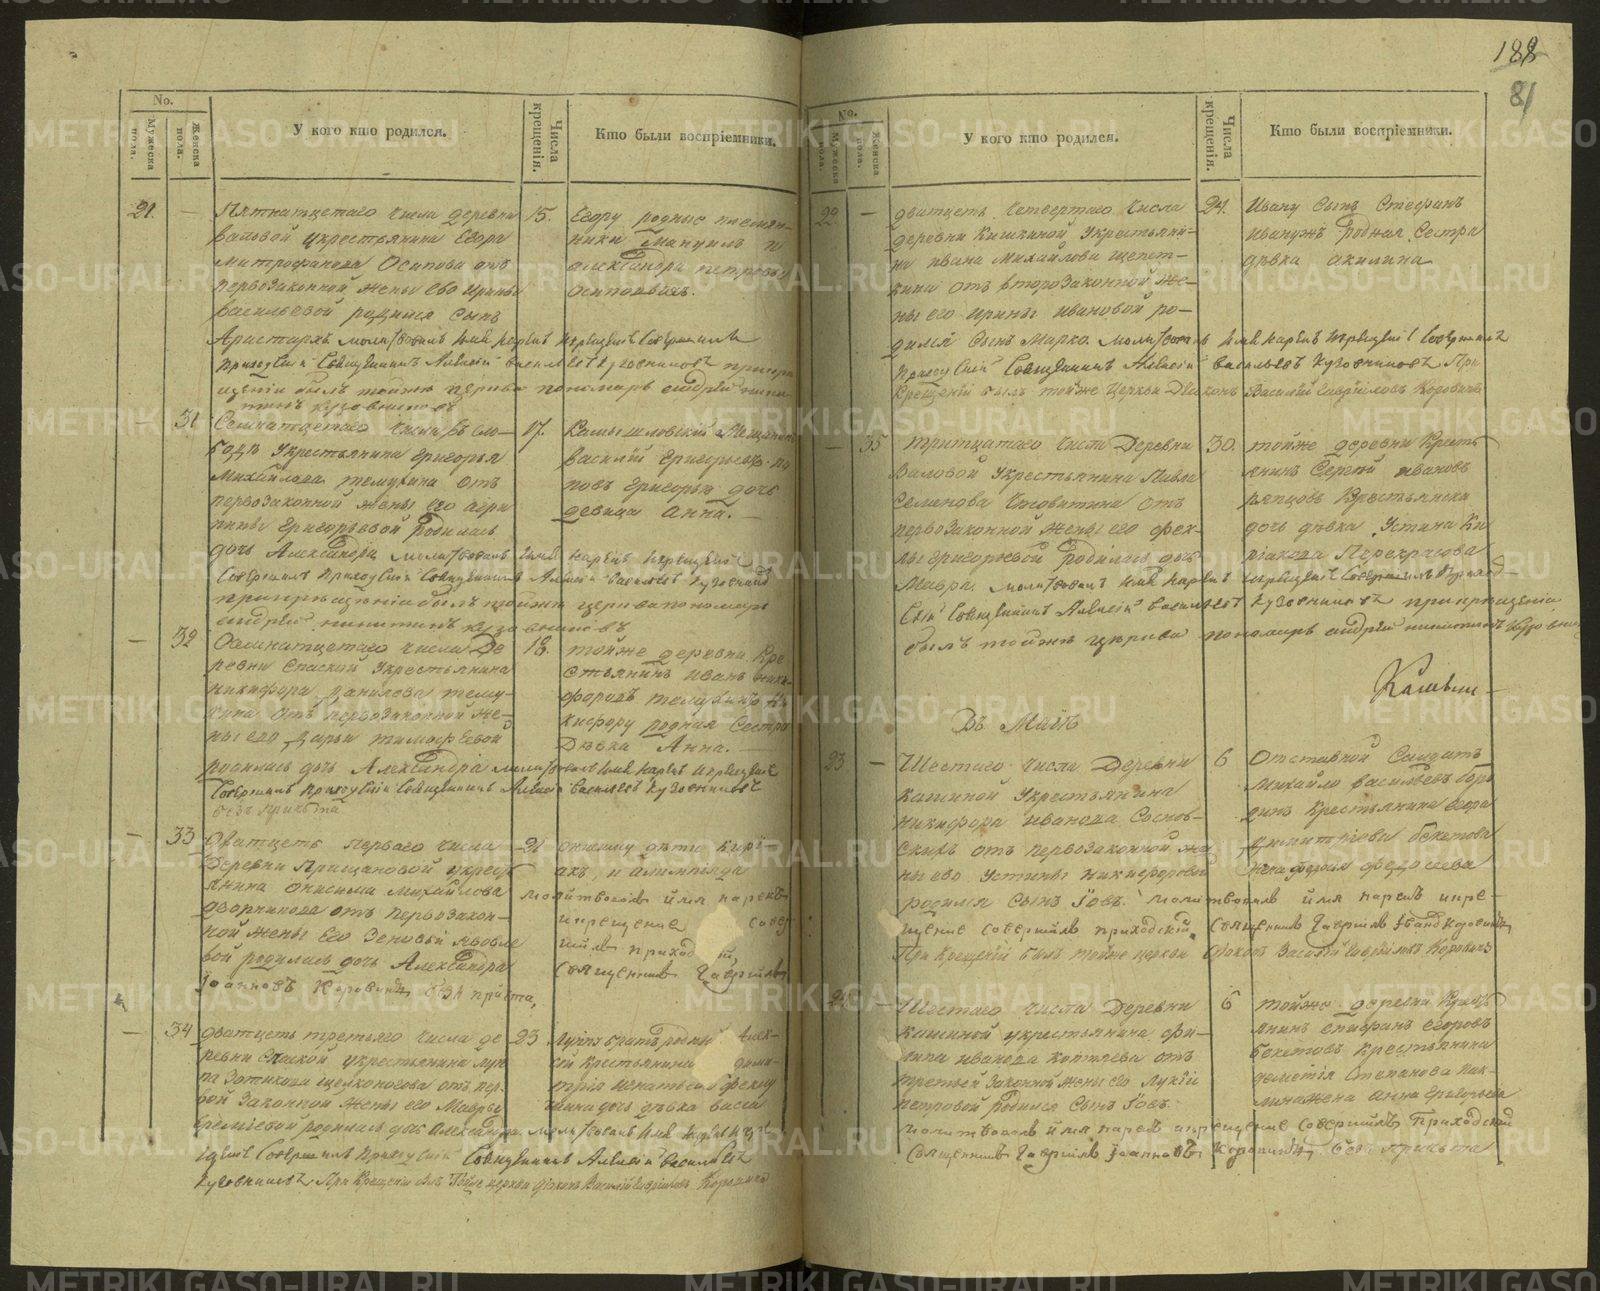 188
81
No.
Мужеска пола.
Женска пола.
У кого кто родился.
Числа крещенія.
Кто были воспріемники.
21. — Пятнатцетаго числа деревни
Валовой укрестьянина Егора
Митрофанова Осипова отъ
первозаконной жены его Ирины
Васильевой родился сынъ
Аристархъ молитвовалъ имя нарекъ и крещеніе совершилъ
приходскій священникъ Алексій Васильевъ Кузовниковъ при кре
щеніи былъ тойже церкви пономарь Андрей Ники
тинъ Кузовниковъ
15.
Егору родные племян-
ники Мануилъ и
Александра Петровы
Осиповыхъ.
— 31 Семнатцетаго числа въ сло-
боде укрестьянина Григорья
Михайлова Темухина отъ
первозаконной жены его Агри
пины Григорьевой родилась
дочь Александра молитвовалъ имя нарекъ и крещеніе
совершилъ приходскій священникъ Алексій Васильевъ Кузовников
при крещеніи былъ тойже церкви пономарь
Андрей Никитинъ Кузовниковъ
17.
Камышловскій мещанинъ
Василій Григорьевъ По
повъ Григорья дочь
девица Анна.
— 32 Осмнатцетаго числа де
ревни Спаской укрестьянина
Никифора Данилова Тему-
хина отъ первозаконной же-
ны его Дарьи Тимофеевой
родилась дочь Александра молитвовалъ имя нарекъ и крещеніе
совершилъ приходскій священникъ Алексій Васильевъ Кузовниковъ
безъ причта
18.
тойже деревни кре
стьянинъ Иванъ Ники-
форовъ Темухинъ Ни
кифору родная сестра
девка Анна.
— 33 Дватцеть перваго числа
деревни Прищановой укресть
янина Онисима Михайлова
Дворникова отъ первозакон-
ной жены его Зеновьи Яковле
вой родилась дочь Александра
21
Онисиму дети Кирі-
акъ, и Олимпіяда
молитвовалъ имя нарекъ
и крещеніе совер
шилъ приходскій
священникъ Гавріилъ
Іоанновъ Коровинъ безъ причта,
— 34 дватцеть третьяго числа де
ревни Спаской укрестьянина Луп
па Зотикова Щелконогова отъ пер-
вой законной жены его Мавры
Еремеевой родилась дочь Александра молитвовалъ имя нарекъ и кр
щеніе совершилъ приходскій священникъ Алексій Васильевъ
Кузовниковъ. При крещеніи былъ тойже церкви діаконъ Василій Гавріиловъ Коровинъ
23
Луппа братъ родный Алек-
сій крестьянина Дими-
трія Игнатьева
дочь девка Васса
No.
Мужеска пола.
Женска пола.
У кого кто родился.
Числа крещенія.
Кто были воспріемники.
22 — дватцеть четвертаго числа
деревни Кишкиной укрестьяни-
на Ивана Михайлова Щепет-
кина отъ второзаконной же-
ны его Ирины Ивановой ро-
дился сынъ Марко. молитвовалъ имя нарекъ и крещеніе совершилъ
приходскій священникъ Алексій Васильевъ Кузовниковъ При
крещеніи былъ тойже церкви діаконъ Василій Гавріиловъ Коровинъ
24.
Ивану сынъ Стефанъ
Ивану жъ родная сестра
девка Акилина
— 35 тритцатаго числа деревни
Валовой укрестьянина Павла
Семенова отъ
первозаконной жены его Фек-
лы Григорьевой родилась дочь
Мавра. молитвовалъ имя нарекъ и крещеніе совершилъ приход
скій священникъ Алексій Васильевъ Кузовниковъ при крещеніи
былъ тойже церкви пономарь Андрей Никитинъ Кузовник
30.
тойже деревни кресть
янинъ Сергей Ивановъ
Репцовъ крестьянска
дочь девка Устина Ки
ріакова Перекрасова
Въ Маіе
23 — Шестаго числа деревни
Кашиной укрестьянина
Никифора Иванова Соснов-
скихъ отъ первозаконной же
ны его Устины Никифоровой
родился сынъ Іовъ. молитвовалъ имя нарекъ и кре-
щеніе совершилъ приходскій священникъ Гавріилъ Іоанновъ Коровинъ
При крещеніи былъ тойже церкви діаконъ Василій Гавріиловъ Коровинъ
6
Отставной солдатъ
Михайло Васильевъ
крестьянина Егора
Димитріева Бекетова
жена Федосеева
24 — Шестаго числа деревни
Кашиной укрестьянина Фи-
липа Иванова Коптяева отъ
третьей законной жены его Лукіи
Петровой родился сынъ Іовъ.
молитвовалъ имя нарекъ и крещеніе совершилъ Приходской
священникъ Гавріилъ Іоанновъ Коровинъ безъ причта
6
тойже деревни кресть
янинъ Епифанъ Егоровъ
Бекетовъ крестьянина
Дометія Степанова
жена Анна Григорьева